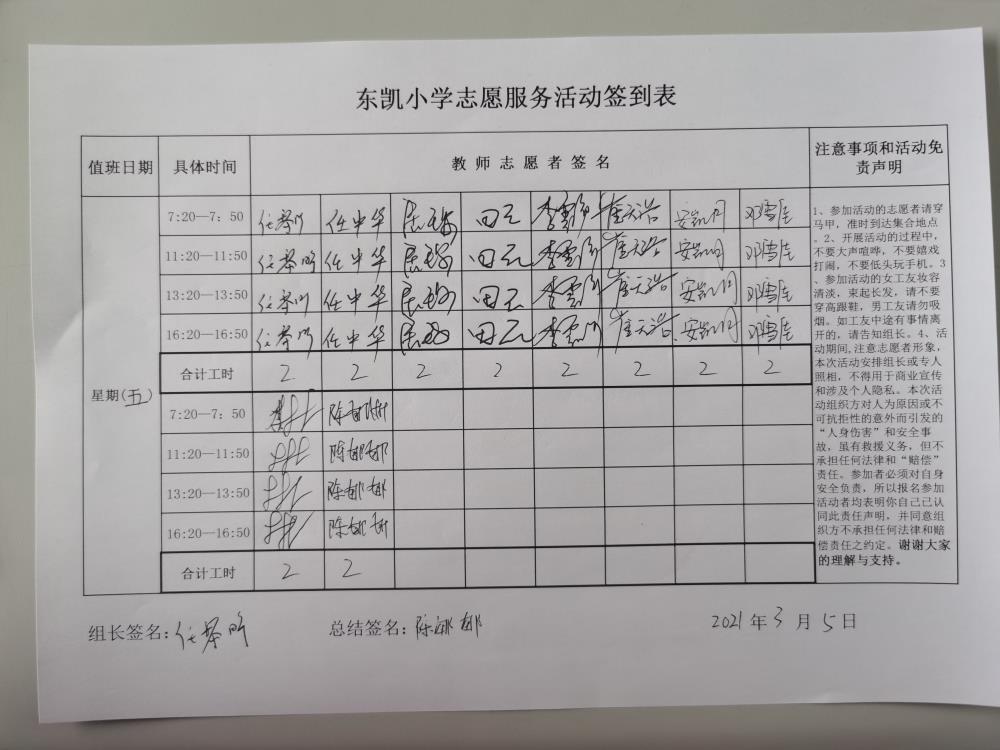 东凯小学志愿服务活动签到表
值班日期 具体时间 教师志愿者签名 注意事项和活动免责声明
7:20—7：50 任中华 田元 崔天浩 安凯月 邓雪佳
11:20—11:50 任中华 田元 崔天浩 安凯月 邓雪佳
13:20—13:50 任中华 田元 崔天浩 安凯月 邓雪佳
16:20—16:50 任中华 田元 崔天浩 安凯月 邓雪佳
合计工时 2 2 2 2 2 2 2 2
星期(五)
7:20—7：50 陈娜娜
11:20—11:50 陈娜娜
13:20—13:50 陈娜娜
16:20—16:50 陈娜娜
合计工时 2 2
1、参加活动的志愿者请穿
马甲，准时到达集合地点
。2、开展活动的过程中，
不要大声喧哗，不要嬉戏
打闹，不要低头玩手机。3
、参加活动的女工友妆容
清淡，束起长发，请不要
穿高跟鞋，男工友请勿吸
烟。如工友中途有事情离
开的，请告知组长。4、活
动期间,注意志愿者形象，
本次活动安排组长或专人
照相，不得用于商业宣传
和涉及个人隐私。本次活
动组织方对人为原因或不
可抗拒性的意外而引发的
“人身伤害”和安全事
故，虽有救援义务，但不
承担任何法律和“赔偿”
责任。参加者必须对自身
安全负责，所以报名参加
活动者均表明你自己己认
同此责任声明，并同意组
织方不承担任何法律和赔
偿责任之约定。谢谢大家
的理解与支持。
组长签名： 总结签名：陈娜娜 2021年3月5日